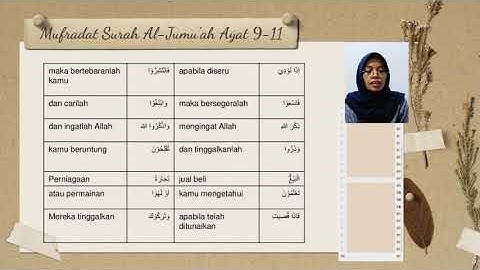 Mufradat Surah Al-Jumu'ah Ayat 9-11
maka bertebaranlah kamu فَانْتَشِرُوْا apabila diseru إِذَا نُوْدِيَ
dan carilah وَابْتَغُوْا maka bersegeralah فَاسْعَوْا
dan ingatlah Allah وَاذْكُرُوا الله mengingat Allah ذِكْرِ الله
kamu beruntung تُفْلِحُوْنَ dan tinggalkanlah وَذَرُوا
Perniagaan تِجَارَةً jual beli الْبَيْعَ
atau permainan اَوْ لَهْوًا kamu mengetahui تَعْلَمُوْنَ
Mereka tinggalkan وَتَرَكُوْكَ apabila telah ditunaikan فَاِذَا قُضِيَتْ